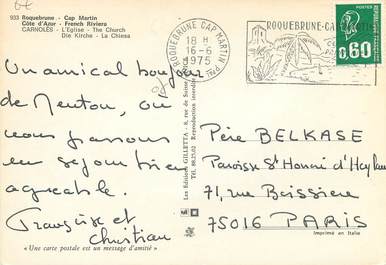 933 Roquebrune - Cap Martin
Côte d'Azur - French Riviera
CARNOLÈS - L'Eglise - The Church
Die Kirche - La Chiesa
Un amical bonjour
de Menton, où
nous passons
un séjour bien
agréable.
Françoise et
Christian
« Une carte postale est un message d'amitié »
Les Editions GILLETTA - 8, rue de
Reproduction interdite
ROQUEBRUNE CAP MARTIN
18 H
16-6
1975
ROQUEBRUNE-CA
0,60
Père BELKASE
Paroisse St Honoré d'Eylau
71, rue Boissière
75016 PARIS
Imprimé en Italie